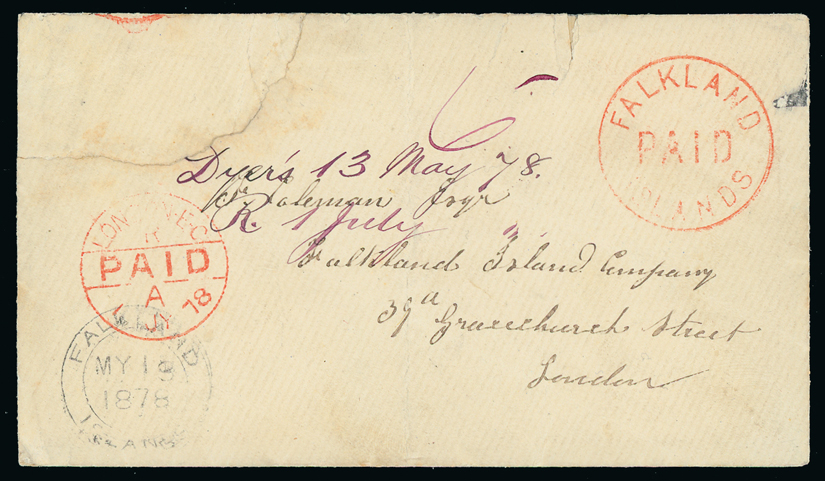 FALKLAND
PAID
ISLANDS
Dyer's 13 May '78.
Coleman Esqr
R. 1 July "
Falkland Island Company
39a Gracechurch Street
London
LONDON E.C
PAID
A
JY 78
FALKLAND
MY 13
1878
ISLANDS